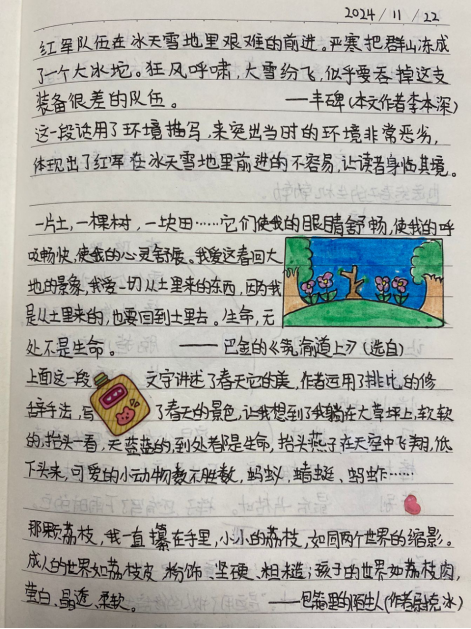 2024/11/22
红军队伍在冰天雪地里艰难的前进。严寒把群山冻成
了一个大冰坨。狂风呼啸,大雪纷飞,似乎要吞掉这支
装备很差的队伍。 ——丰碑(本文作者李本深)
这一段话用了环境描写,来突出当时的环境非常恶劣,
体现出了红军在冰天雪地里前进的不容易,让读者身临其境。
一片土,一棵树,一块田……它们使我的眼睛舒畅,使我的呼
吸畅快,使我的心灵舒展。我爱这春回大
地的景象,我爱一切从土里来的东西,因为我
是从土里来的,也要回到土里去。生命,无
处不是生命。 ——巴金的《筑渝道上》(选自)
上面这一段 文字讲述了春天它的美,作者运用了排比的修
辞手法,写 了春天的景色,让我想到了我躺在大草坪上,软软
的,抬头一看,天蓝蓝的,到处都是生命,抬头燕子在天空中飞翔,低
下头来,可爱的小动物数不胜数,蚂蚁、蜻蜓、蚂蚱……
那颗荔枝,我一直攥在手里,小小的荔枝,如同两个世界的缩影。
成人的世界如荔枝皮,粉饰、坚硬、粗糙;孩子的世界如荔枝肉,
莹白、晶透、柔软。 ——包箱里的陌生人(作者 冰)